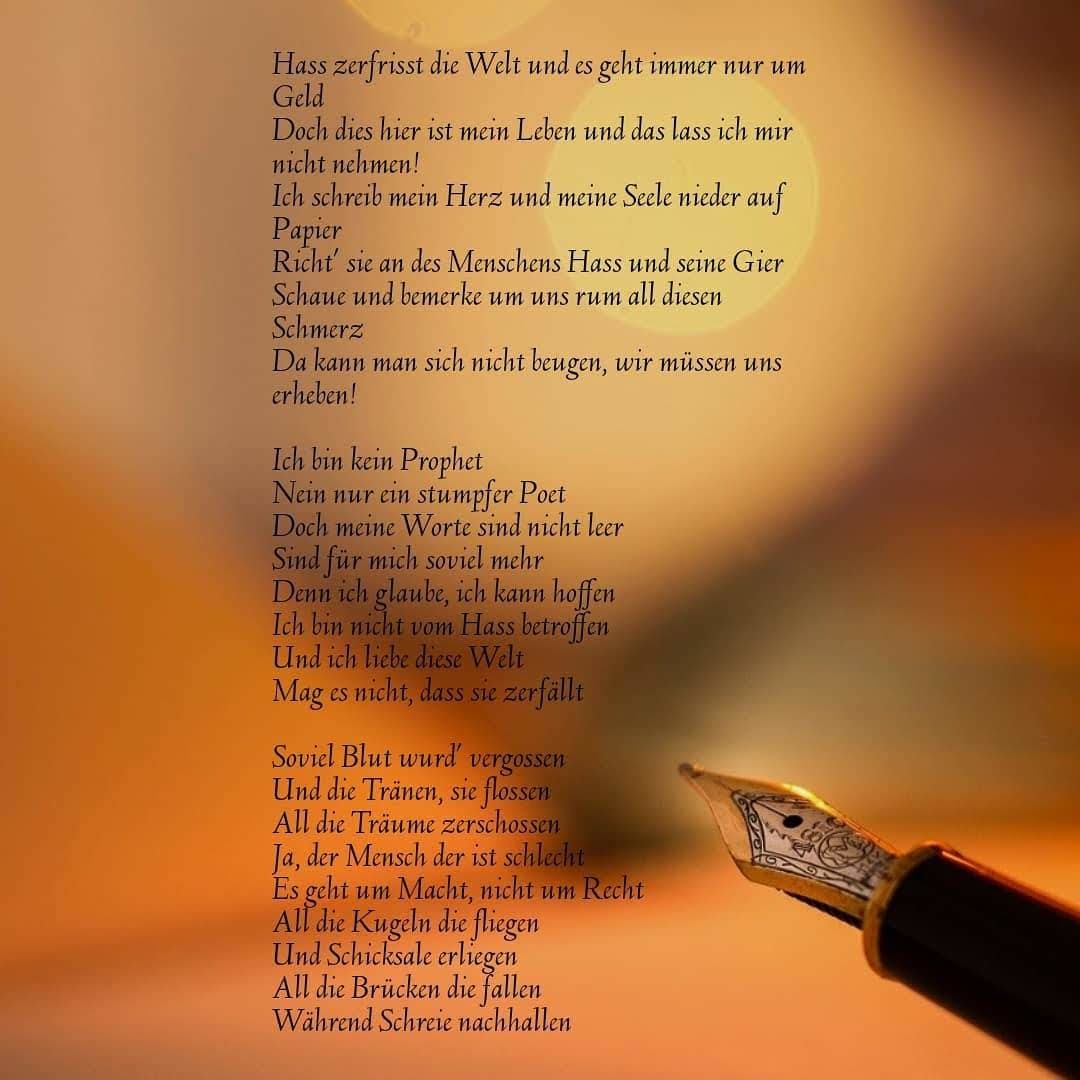 Hass zerfrisst die Welt und es geht immer nur um
Geld
Doch dies hier ist mein Leben und das lass ich mir
nicht nehmen!
Ich schreib mein Herz und meine Seele nieder auf
Papier
Richt' sie an des Menschens Hass und seine Gier
Schaue und bemerke um uns rum all diesen
Schmerz
Da kann man sich nicht beugen, wir müssen uns
erheben!

Ich bin kein Prophet
Nein nur ein stumpfer Poet
Doch meine Worte sind nicht leer
Sind für mich soviel mehr
Denn ich glaube, ich kann hoffen
Ich bin nicht vom Hass betroffen
Und ich liebe diese Welt
Mag es nicht, dass sie zerfällt

Soviel Blut wurd' vergossen
Und die Tränen, sie flossen
All die Träume zerschossen
Ja, der Mensch der ist schlecht
Es geht um Macht, nicht um Recht
All die Kugeln die fliegen
Und Schicksale erliegen
All die Brücken die fallen
Während Schreie nachhallen